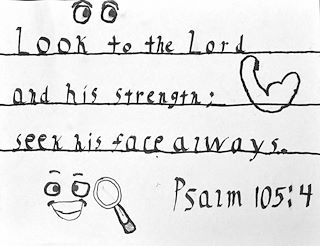 Look to the Lord
and his strength;
seek his face always.
Psalm 105:4